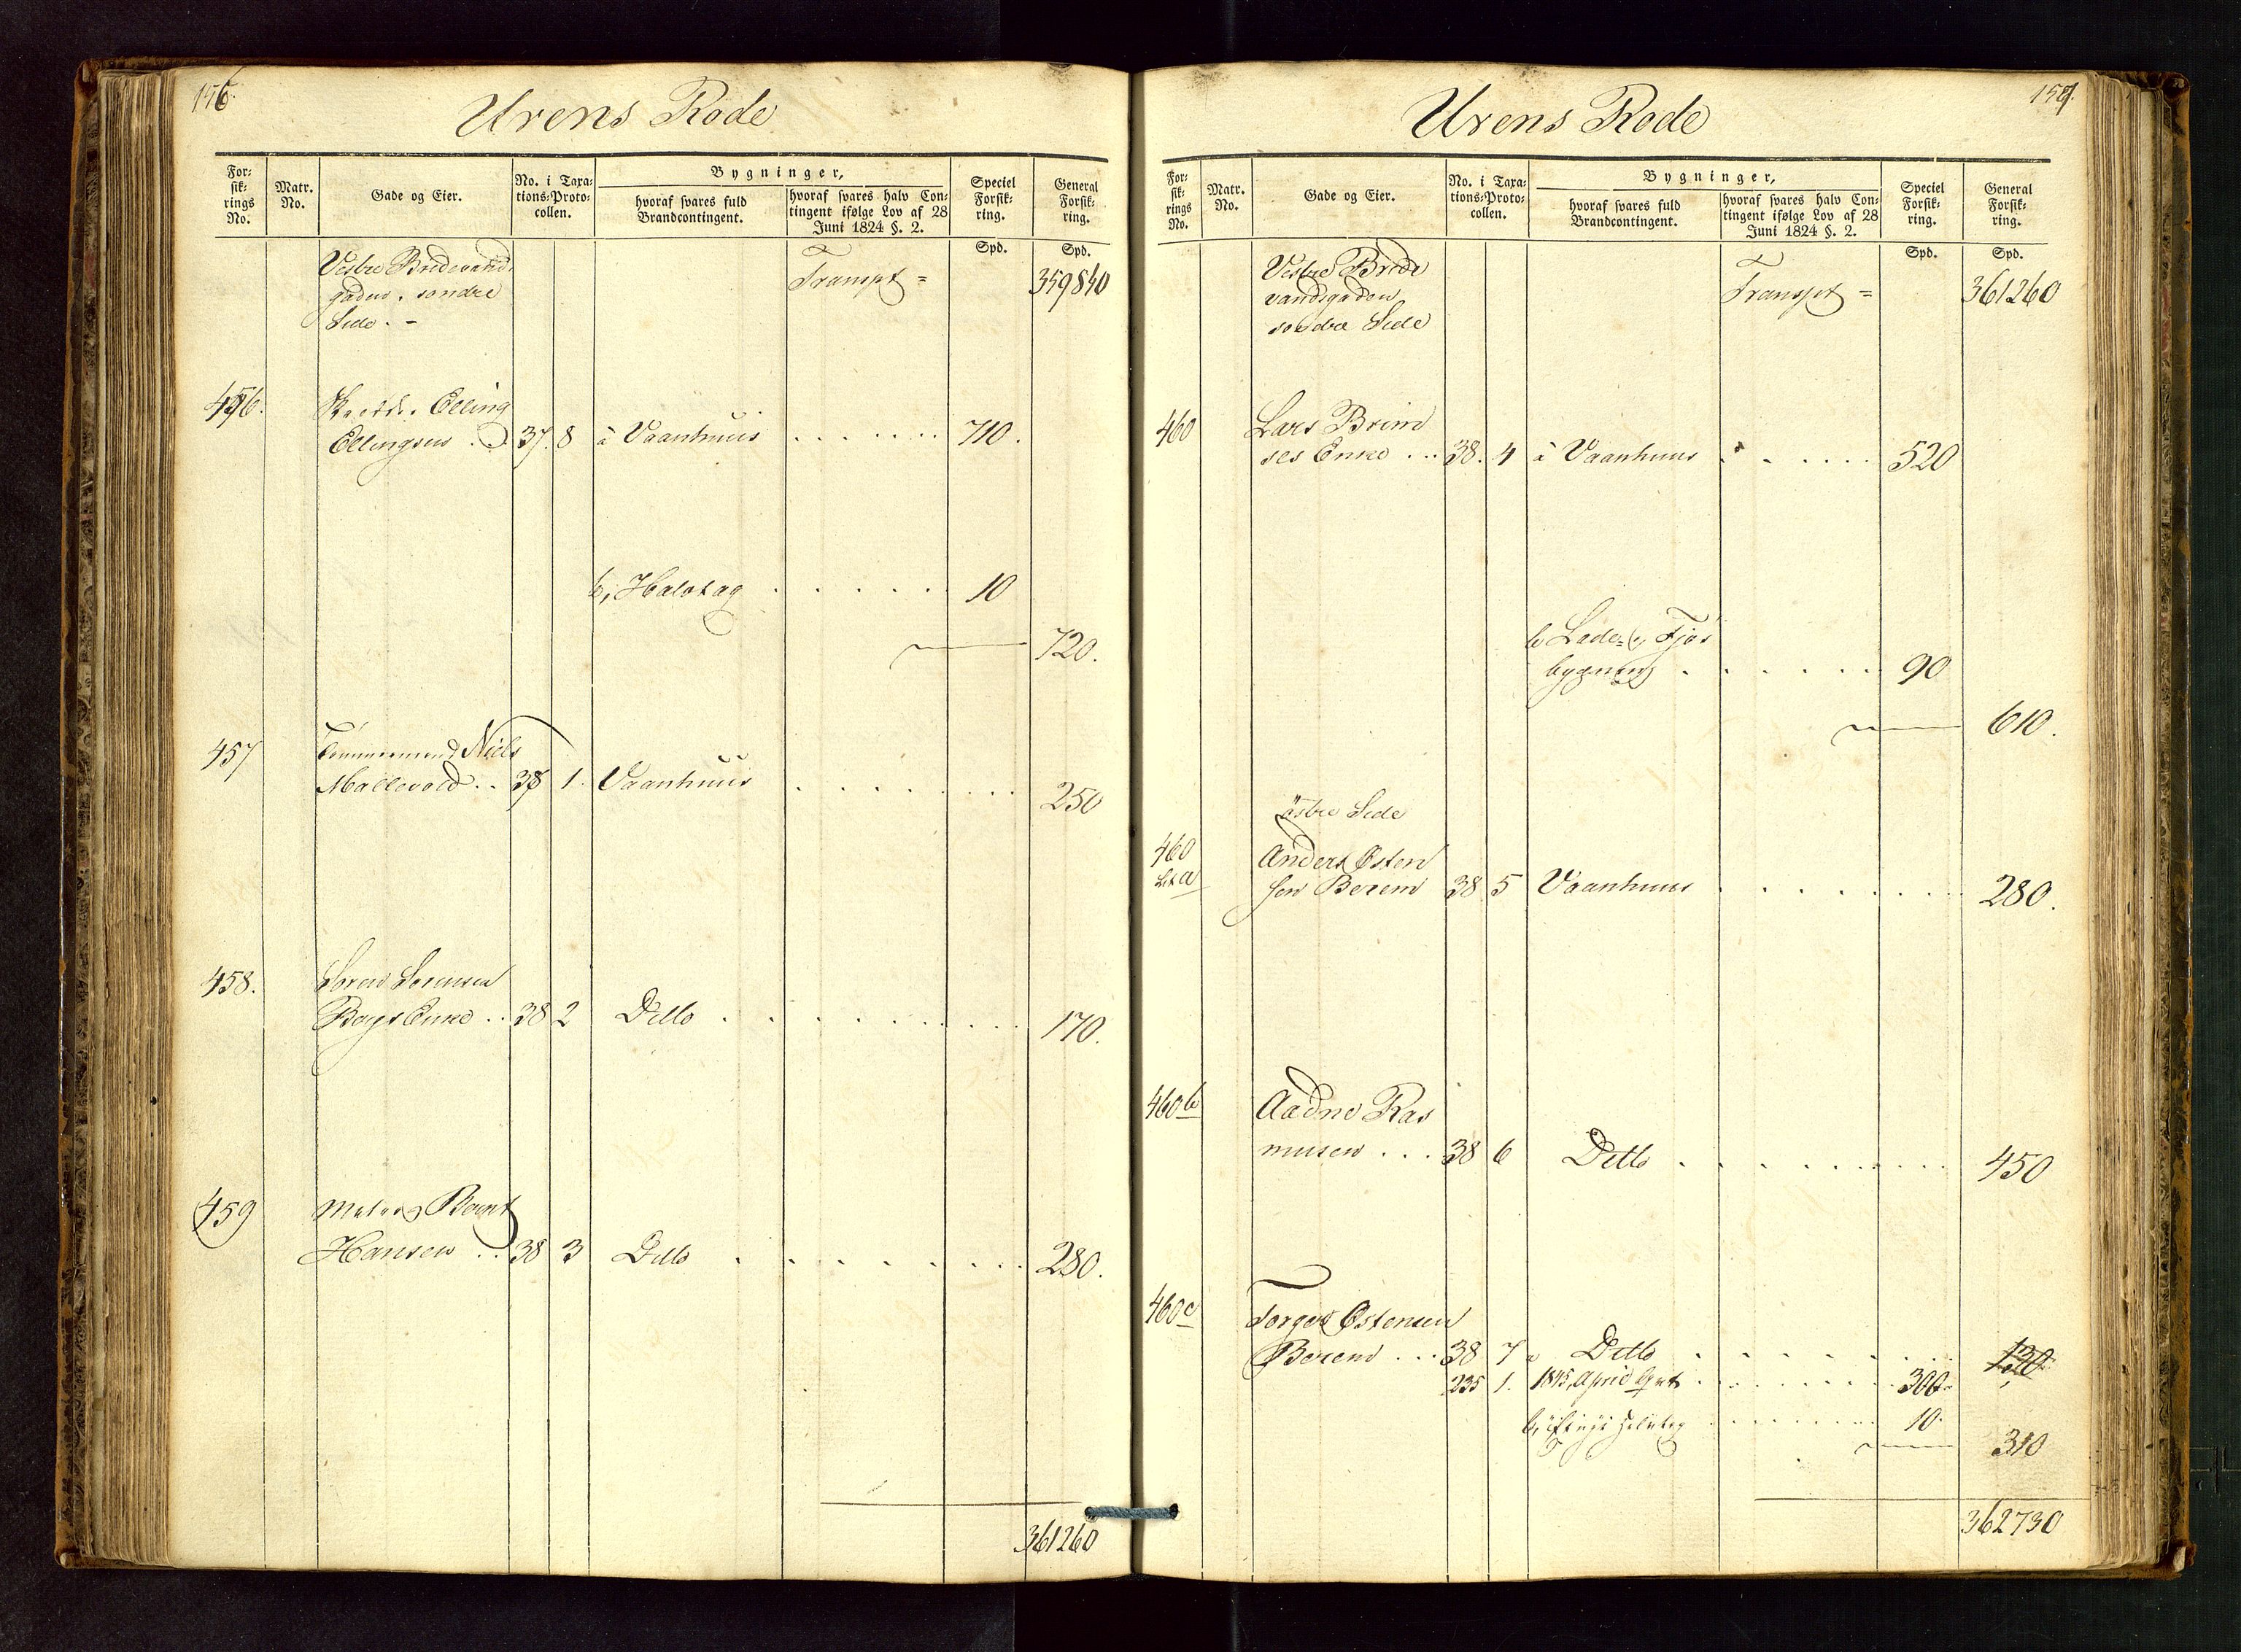 156.
Urens Rode
For-
sik-
rings
No.
Matr.
No.
Gade og Eier.
No. i Taxa-
tions-Proto-
collen.
Bygninger,
hvoraf svares fuld
Brandcontingent.
hvoraf svares halv Con-
tingent ifølge Lov af 28
Juni 1824 §. 2.
Speciel
Forsik-
ring.
General
Forsik-
ring.
Spd.
Spd.
Vestre Bredevands
gaden. søndre
Side. -
Transpt =
359840
456.
Elling
Ellingsen . . 37. 8 a Vaanhuus . . . . . . . 710.
b, Halvtag . . . . . . 10
720.
457
Tømmermand Niels
Mallevold . . 38 1. Vaanhuus . . . . . . . . 250
458.
Søren Sørensen
Bergs Enke . . 38 2 Ditto . . . . . . . . . 170.
459
Berent
Hansen . . 38 3 Ditto . . . . . . . . . 280.
361260
157.
Urens Rode
For-
sik-
rings
No.
Matr.
No.
Gade og Eier.
No. i Taxa-
tions-Proto-
collen.
Bygninger,
hvoraf svares fuld
Brandcontingent.
hvoraf svares halv Con-
tingent ifølge Lov af 28
Juni 1824 §. 2.
Speciel
Forsik-
ring.
General
Forsik-
ring.
Spd.
Spd.
Vestre Brede
vandsgaden
søndre Side
Transpt =
361260
460
Lars Brim
ses Enke . . . 38. 4 a Vaanhuus . . . . . . 520
b Lade- & Fjøs
bygning . . . . . . 90
610.
østre Side
460
Lit a
Anders Østen
sen Berem 38 5 Vaanhuus . . . . . . . . 280.
460 b
Aadne Ras
musen . . . 38 6 Ditto . . . . . . . . . 450
460 c
Torger Østensen
Berem . . . 38 7 a Ditto . . . . . . . . 130
235 1. 1845, April . . . . . . . . 300
b, Halvtag . . . . . . . . 10.
310
362730